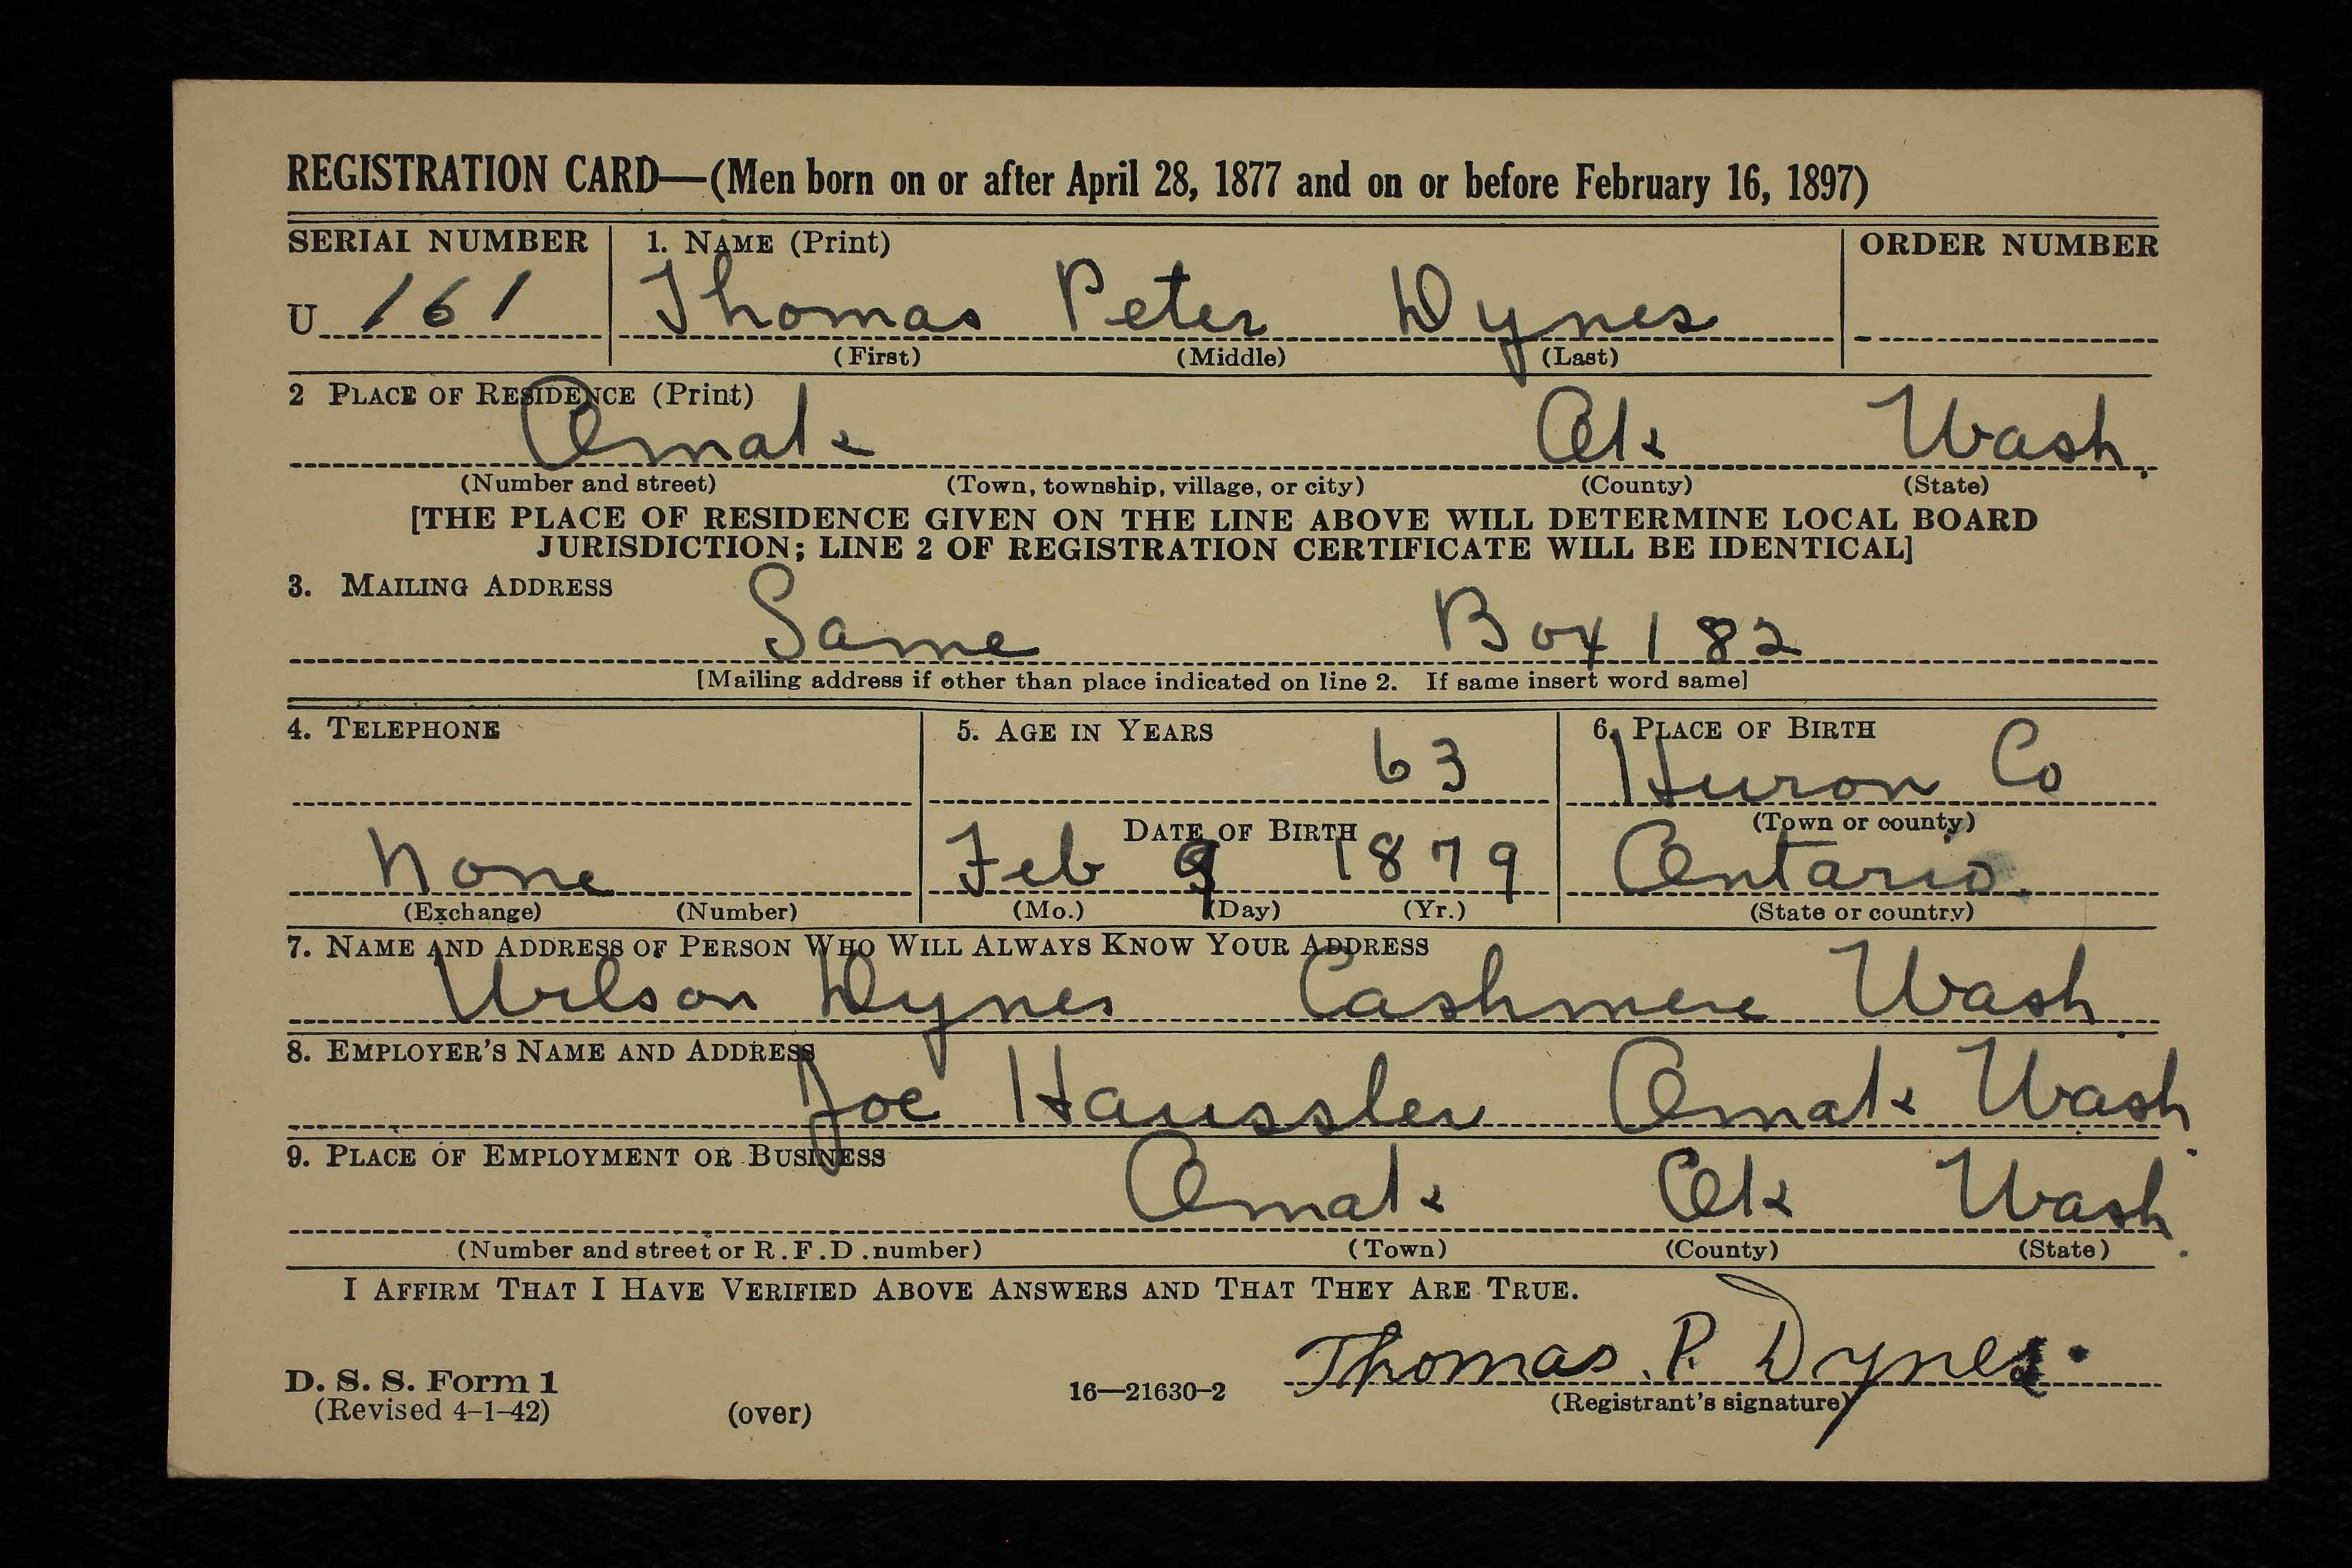 REGISTRATION CARD—(Men born on or after April 28, 1877 and on or before February 16, 1897)
SERIAL NUMBER 1. NAME (Print) ORDER NUMBER
U 161 Thomas Peter Dynes
(First) (Middle) (Last)
2 PLACE OF RESIDENCE (Print)
Omak Ok Wash.
(Number and street) (Town, township, village, or city) (County) (State)
[THE PLACE OF RESIDENCE GIVEN ON THE LINE ABOVE WILL DETERMINE LOCAL BOARD
JURISDICTION; LINE 2 OF REGISTRATION CERTIFICATE WILL BE IDENTICAL]
3. MAILING ADDRESS
Same Box 182
[Mailing address if other than place indicated on line 2. If same insert word same]
4. TELEPHONE 5. AGE IN YEARS 6. PLACE OF BIRTH
63 Huron Co
DATE OF BIRTH (Town or county)
None Feb 1879 Ontario.
(Exchange) (Number) (Mo.) (Day) (Yr.) (State or country)
7. NAME AND ADDRESS OF PERSON WHO WILL ALWAYS KNOW YOUR ADDRESS
Wilson Dynes Cashmere Wash.
8. EMPLOYER'S NAME AND ADDRESS
Joe Haussler Omak Wash.
9. PLACE OF EMPLOYMENT OR BUSINESS
Omak Ok Wash.
(Number and street or R.F.D. number) (Town) (County) (State)
I AFFIRM THAT I HAVE VERIFIED ABOVE ANSWERS AND THAT THEY ARE TRUE.
Thomas. P. Dynes.
D. S. S. Form 1 16—21630-2 (Registrant's signature)
(Revised 4-1-42) (over)